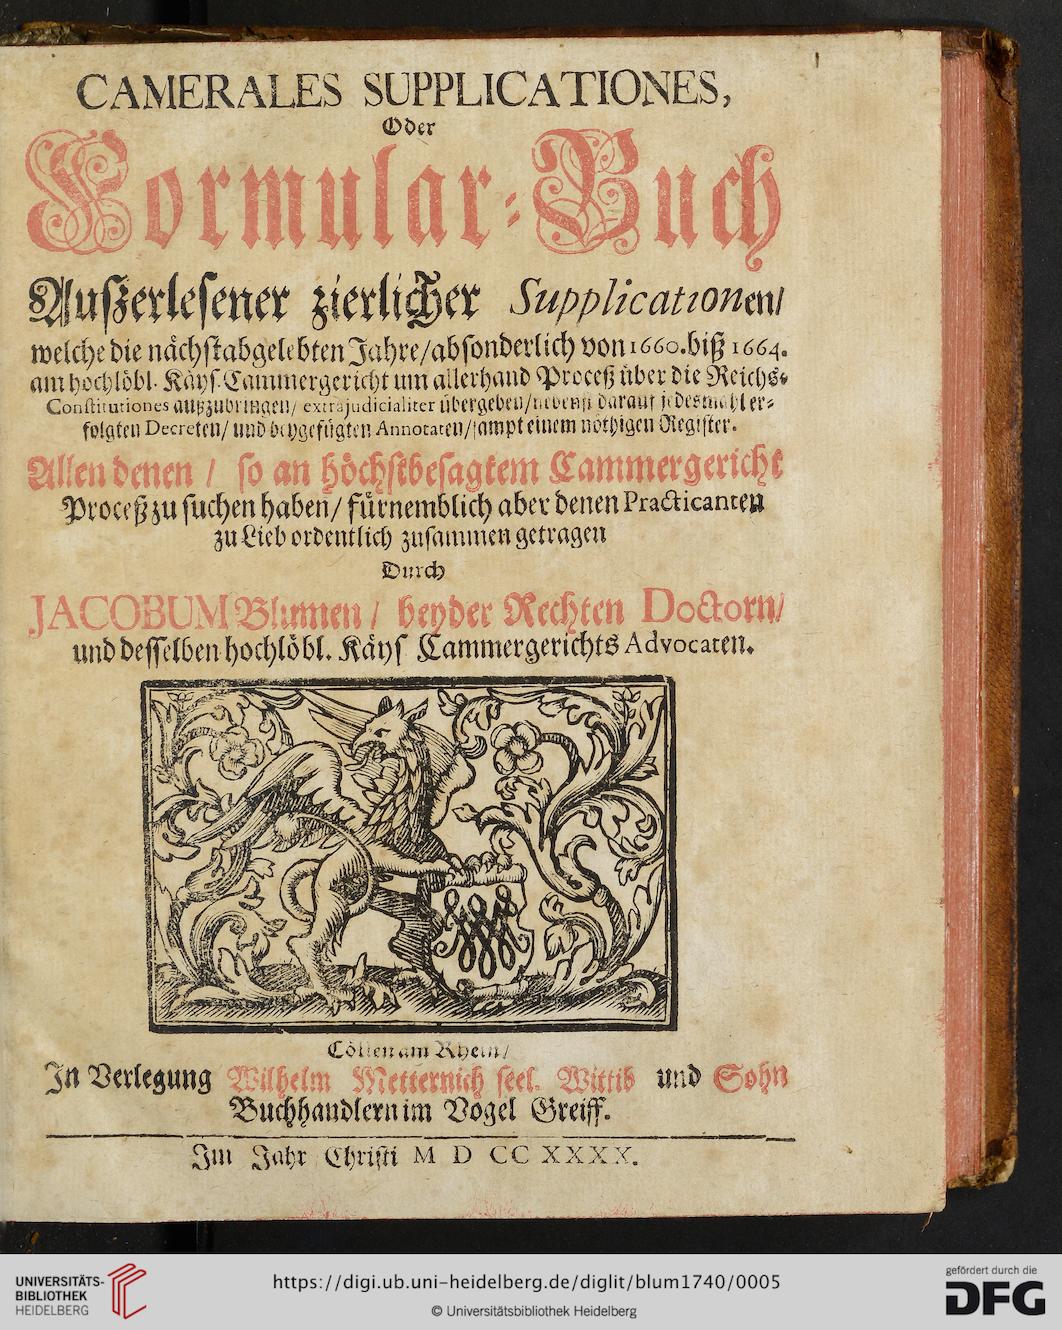 CAMERALES SUPPLICATIONES,
Oder
Formular-Buch
Außerlesener zierlicher Supplicationen/
welche die nächstabgelebten Jahre/absonderlich von 1660.biß 1664.
am hochlöbl. Käys. Cammergericht um allerhand Proceß über die Reichs-
Constitutiones außzubringen/ extrajudicialiter übergeben/ nebenst darauf jedesmahl er-
folgten Decreten/ und beygefügten Annotaten/ sampt einem nöthigen Register.
Allen denen / so an höchstbesagtem Cammergericht
Proceß zu suchen haben/ fürnemblich aber denen Practicanten
zu Lieb ordentlich zusammen getragen
Durch
JACOBUM Blumen / beyder Rechten Doctorn/
und desselben hochlöbl. Käys Cammergerichts Advocaten.
Cöllen am Rhein/
In Verlegung Wilhelm Metternich seel. Wittib und Sohn
Buchhandlern im Vogel Greiff.
Im Jahr Christi M D CC XXXX.
UNIVERSITÄTS-
BIBLIOTHEK
HEIDELBERG
https://digi.ub.uni-heidelberg.de/diglit/blum1740/0005
© Universitätsbibliothek Heidelberg
gefördert durch die
DFG